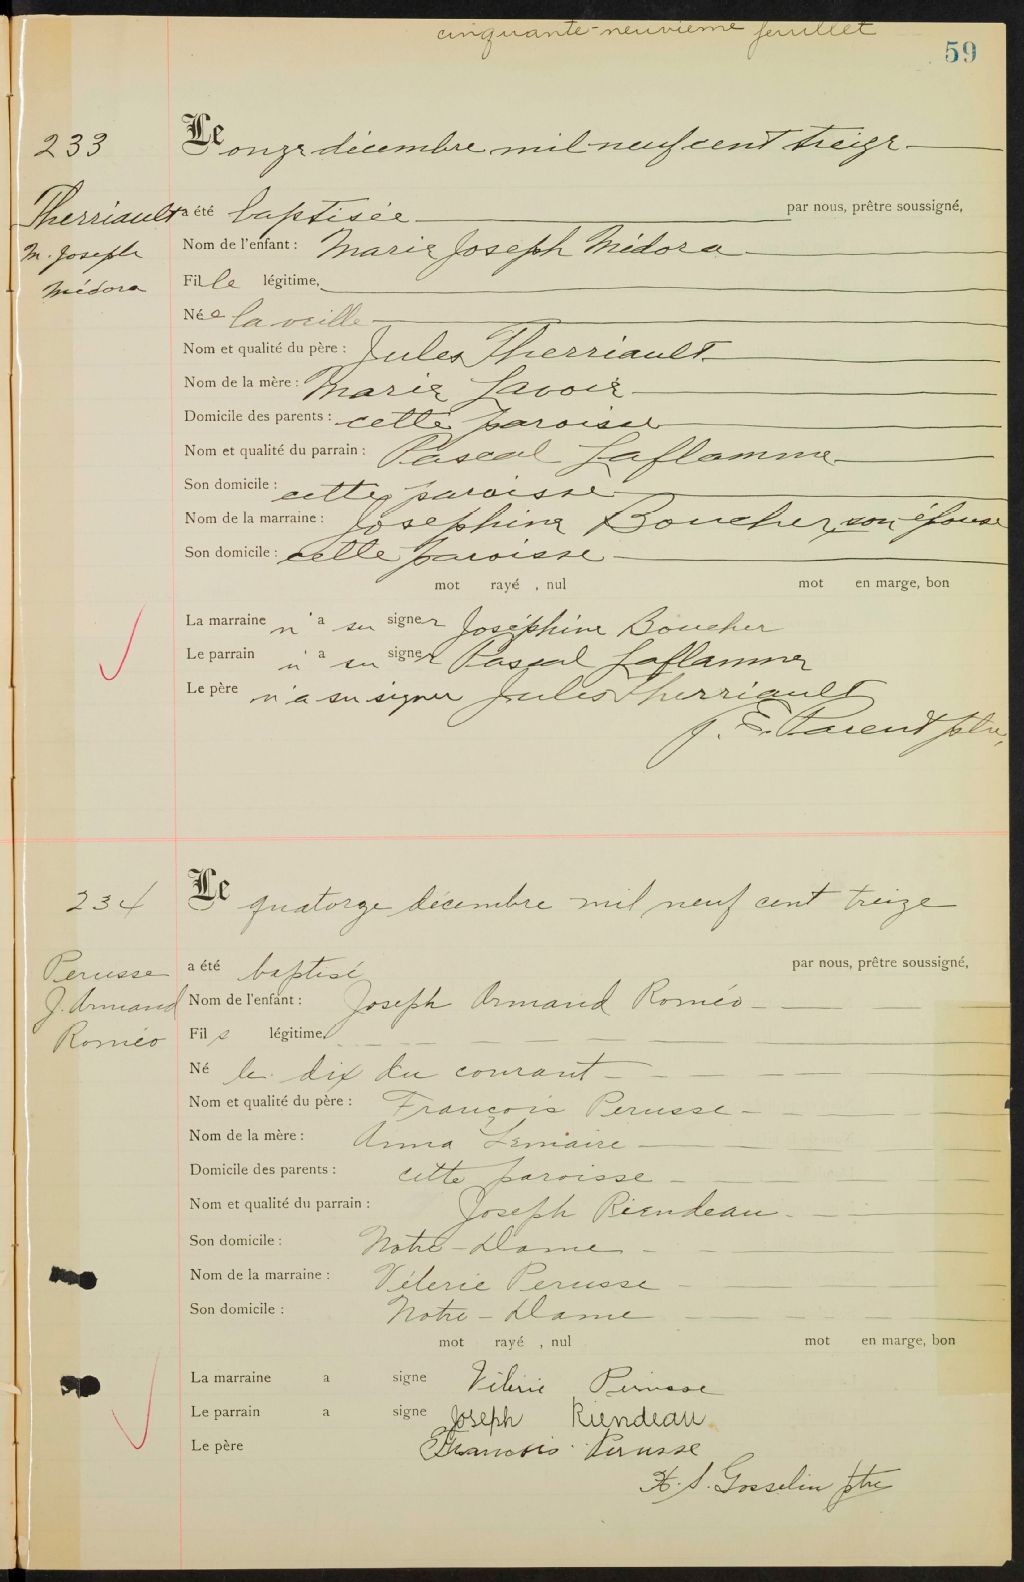 cinquante-neuvième feuillet
59
233
Le onze décembre mil neuf cent treize
Therriault
M. Joseph
Médora
a été baptisée par nous, prêtre soussigné,
Nom de l'enfant : Marie Joseph Médora
Fille légitime,
Née la veille
Nom et qualité du père : Jules Therriault
Nom de la mère : Marie Lavoie
Domicile des parents : cette paroisse
Nom et qualité du parrain : Pascal Laflamme
Son domicile : cette paroisse
Nom de la marraine : Josephine Boucher, son épouse
Son domicile : cette paroisse
mot rayé , nul mot en marge, bon
La marraine n'a su signer Joséphine Boucher
Le parrain n'a su signer Pascal Laflamme
Le père n'a su signer Jules Therriault
J. E. Parent ptre,
234
Le quatorze décembre mil neuf cent treize
Perusse
J. Armand
Roméo
a été baptisé par nous, prêtre soussigné,
Nom de l'enfant : Joseph Armand Roméo
Fils légitime,
Né le dix du courant
Nom et qualité du père : François Perusse
Nom de la mère : Anna Lemaire
Domicile des parents : cette paroisse
Nom et qualité du parrain : Joseph Riendeau
Son domicile : Notre-Dame
Nom de la marraine : Vélerie Perusse
Son domicile : Notre-Dame
mot rayé , nul mot en marge, bon
La marraine a signe Vélerie Perusse
Le parrain a signe Joseph Riendeau
Le père Francois Perusse
H. S. Gosselin ptre